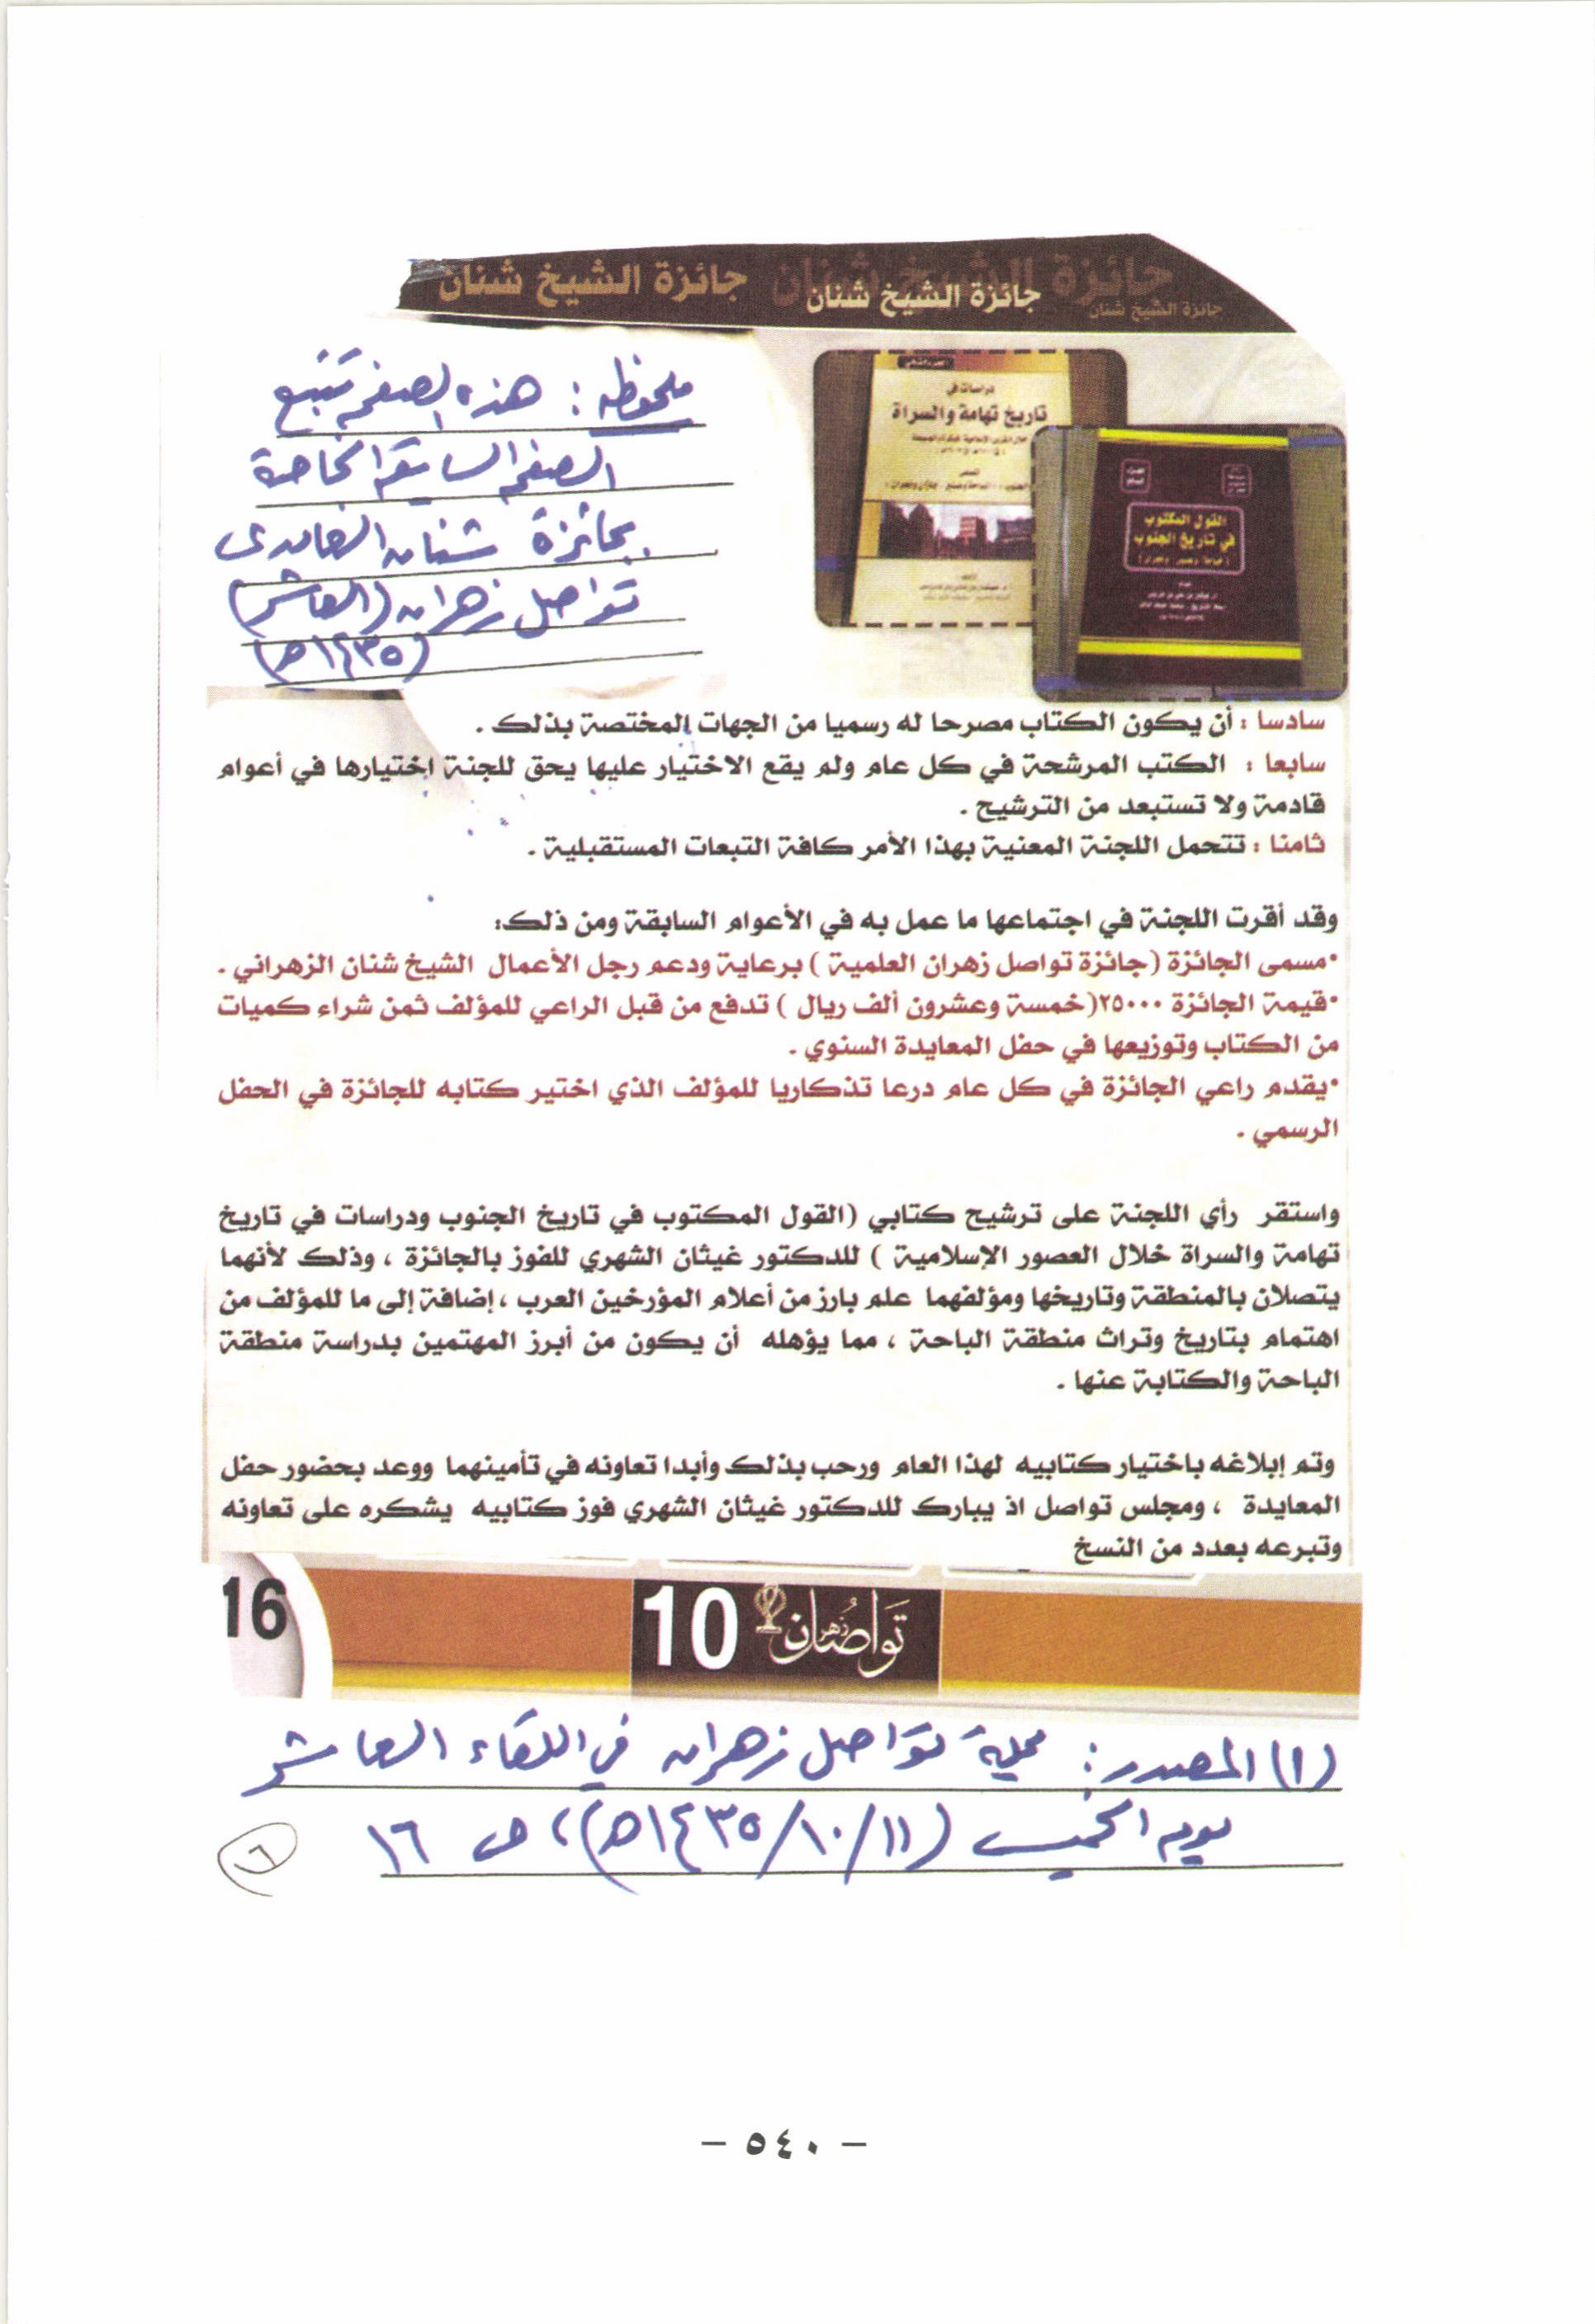 جائزة الشيخ شنان جائزة الشيخ شنان جائزة الشيخ شنان جائزة الشيخ شنان
ملحوظه : هذه الصفحه تتبع
الصفحه السابقه الخاصة
بجائزة شنان الغامدي
تواصل زهران (العاشر)
(١٤٣٥هـ)
دراسات في
تاريخ تهامة والسراة
القول المكتوب
في تاريخ الجنوب
سادسا : أن يكون الكتاب مصرحا له رسميا من الجهات المختصة بذلك .
سابعا : الكتب المرشحة في كل عام ولم يقع الاختيار عليها يحق للجنة اختيارها في أعوام
قادمة ولا تستبعد من الترشيح .
ثامنا : تتحمل اللجنة المعنية بهذا الأمر كافة التبعات المستقبلية .
وقد أقرت اللجنة في اجتماعها ما عمل به في الأعوام السابقة ومن ذلك:
•مسمى الجائزة (جائزة تواصل زهران العلمية ) برعاية ودعم رجل الأعمال الشيخ شنان الزهراني .
•قيمة الجائزة ٢٥٠٠٠(خمسة وعشرون ألف ريال ) تدفع من قبل الراعي للمؤلف ثمن شراء كميات
من الكتاب وتوزيعها في حفل المعايدة السنوي .
•يقدم راعي الجائزة في كل عام درعا تذكاريا للمؤلف الذي اختير كتابه للجائزة في الحفل
الرسمي .
واستقر رأي اللجنة على ترشيح كتابي (القول المكتوب في تاريخ الجنوب ودراسات في تاريخ
تهامة والسراة خلال العصور الإسلامية ) للدكتور غيثان الشهري للفوز بالجائزة ، وذلك لأنهما
يتصلان بالمنطقة وتاريخها ومؤلفهما علم بارز من أعلام المؤرخين العرب ، إضافة إلى ما للمؤلف من
اهتمام بتاريخ وتراث منطقة الباحة ، مما يؤهله أن يكون من أبرز المهتمين بدراسة منطقة
الباحة والكتابة عنها .
وتم إبلاغه باختيار كتابيه لهذا العام ورحب بذلك وأبدا تعاونه في تأمينهما ووعد بحضور حفل
المعايدة ، ومجلس تواصل اذ يبارك للدكتور غيثان الشهري فوز كتابيه يشكره على تعاونه
وتبرعه بعدد من النسخ
16
تواصل زهران 10
(١) المصدر : مجلة تواصل زهران في اللقاء العاشر
يوم الخميس (١١/١٠/١٤٣٥هـ)، ص ١٦
٦
- ٥٤٠ -